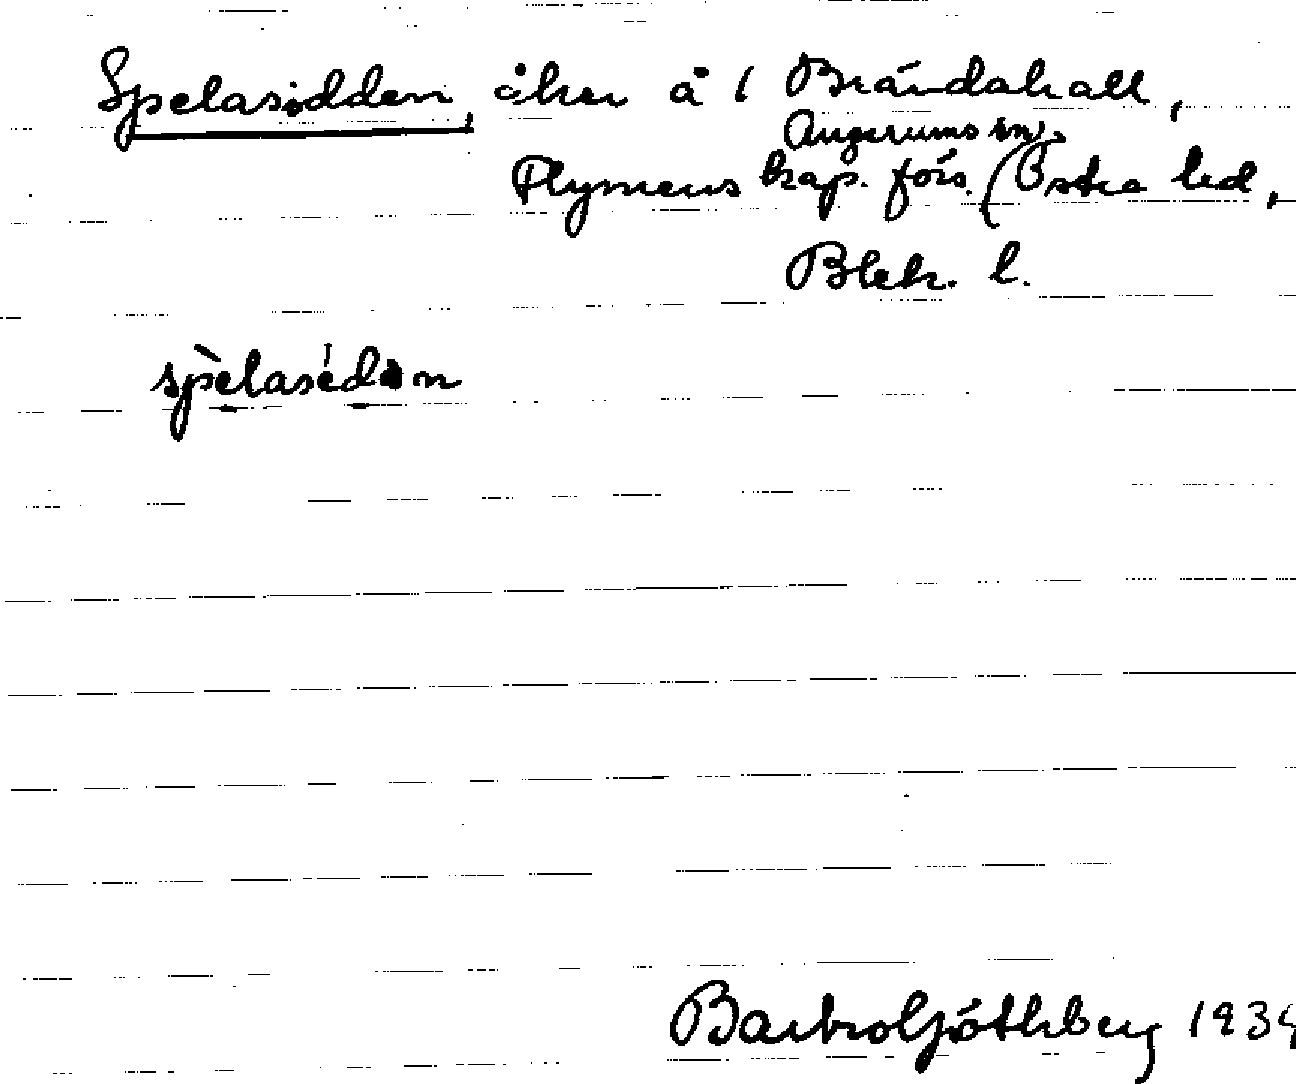 Spelasidden, åker å 1 Brändahall,
Augerums sn,
Flymens kap. förs. (Östra hd,
Blek. l.
Barbro Göthberg 193